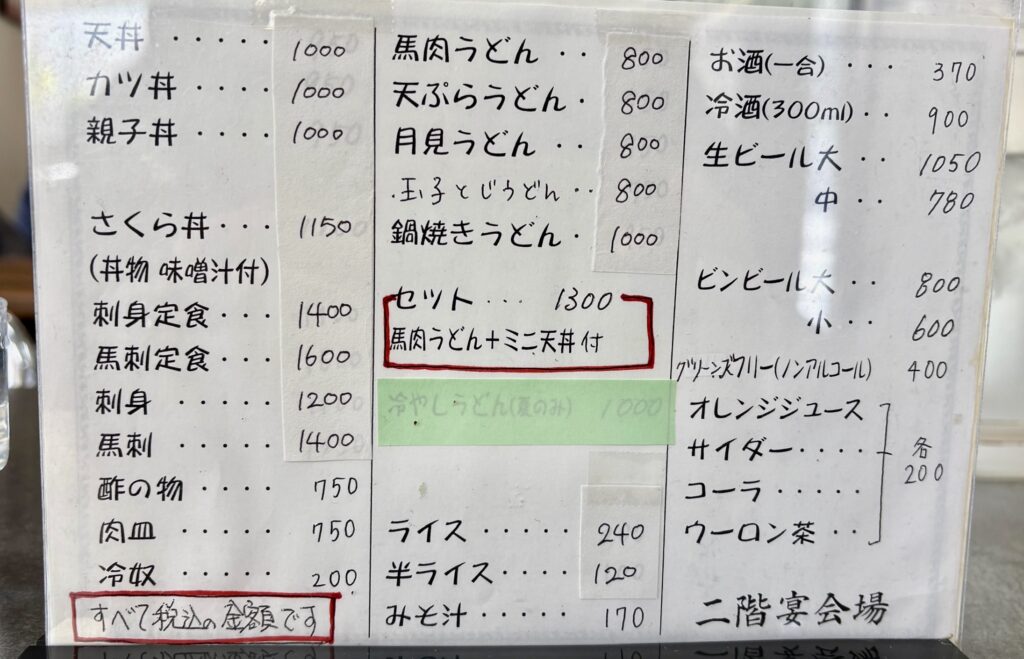 天丼 ····· 1000
カツ丼 ···· 1000
親子丼 ···· 1000
さくら丼 ··· 1150
(丼物 味噌汁付)
刺身定食 ··· 1400
馬刺定食 ··· 1600
刺身 ····· 1200
馬刺 ····· 1400
酢の物 ···· 750
肉皿 ····· 750
冷奴 ····· 200
すべて税込の金額です
馬肉うどん ·· 800
天ぷらうどん · 800
月見うどん ·· 800
.玉子とじうどん ·· 800
鍋焼きうどん · 1000
セット ··· 1300
馬肉うどん+ミニ天丼付
冷やしうどん(夏のみ) 1000
ライス ····· 240
半ライス ···· 120
みそ汁 ····· 170
お酒(一合) ··· 370
冷酒(300ml) ·· 900
生ビール大 ·· 1050
中 ·· 780
ビンビール大 ·· 800
小 ·· 600
グリーンズフリー(ノンアルコール) 400
オレンジジュース
サイダー ····
コーラ ·····
ウーロン茶 ··
各
200
二階宴会場